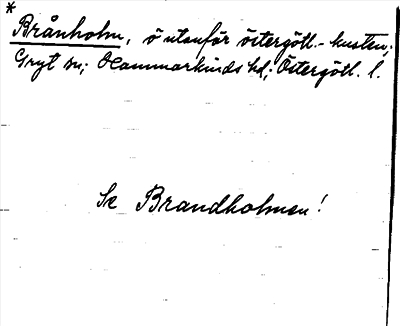 *
Brånholm, ö utanför östergötl.-kusten;
Gryt sn; Hammarkinds hd; Östergötl. l.
Se Brandholmen!